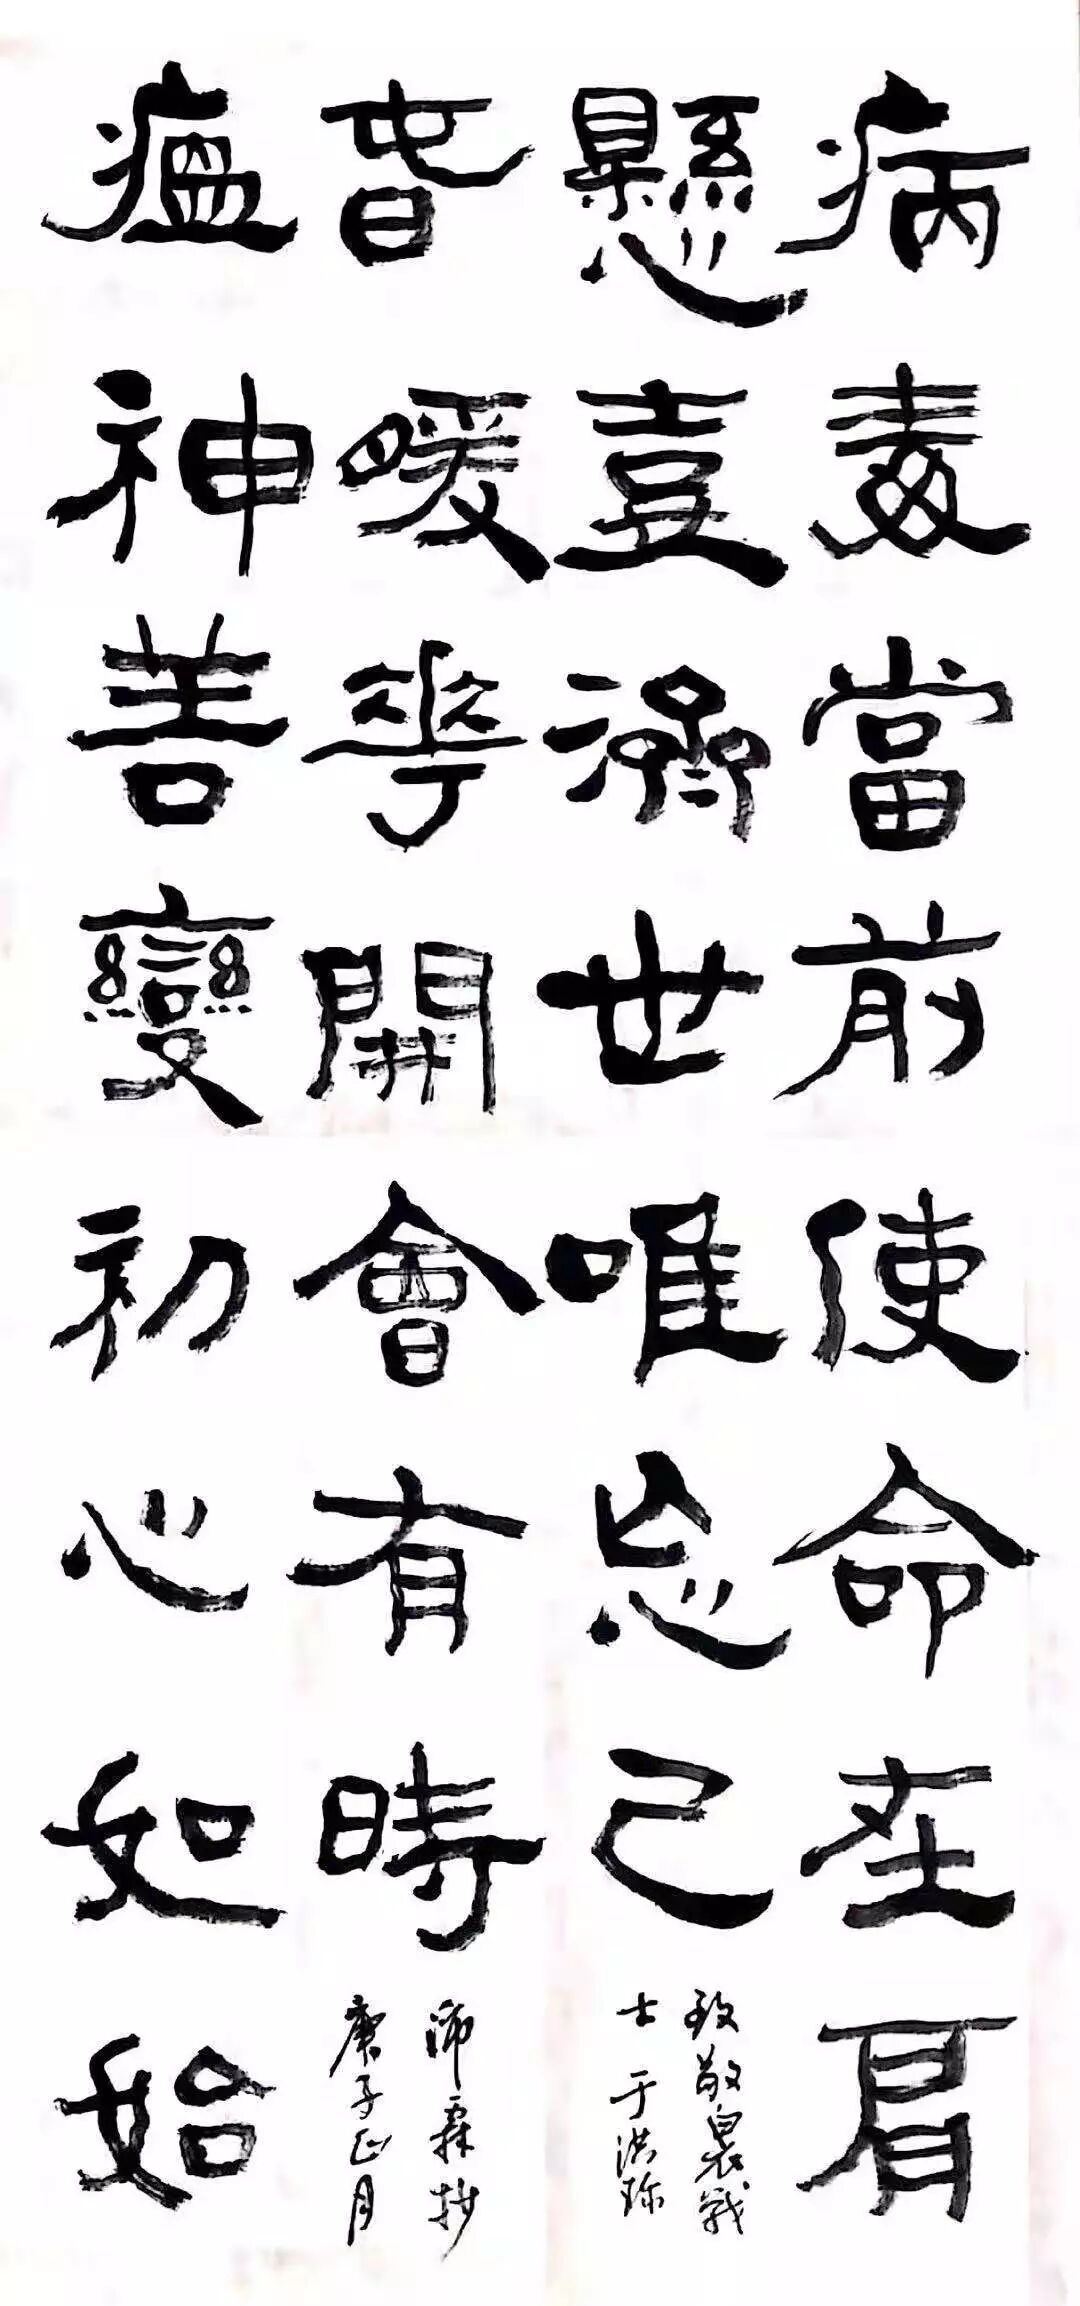 病毒當前使命在肩
懸壺濟世唯忘己
致敬白衣戰
士 于洪珎
春暖華開會有時
沛霖抄
庚子正月
瘟神善變初心如始